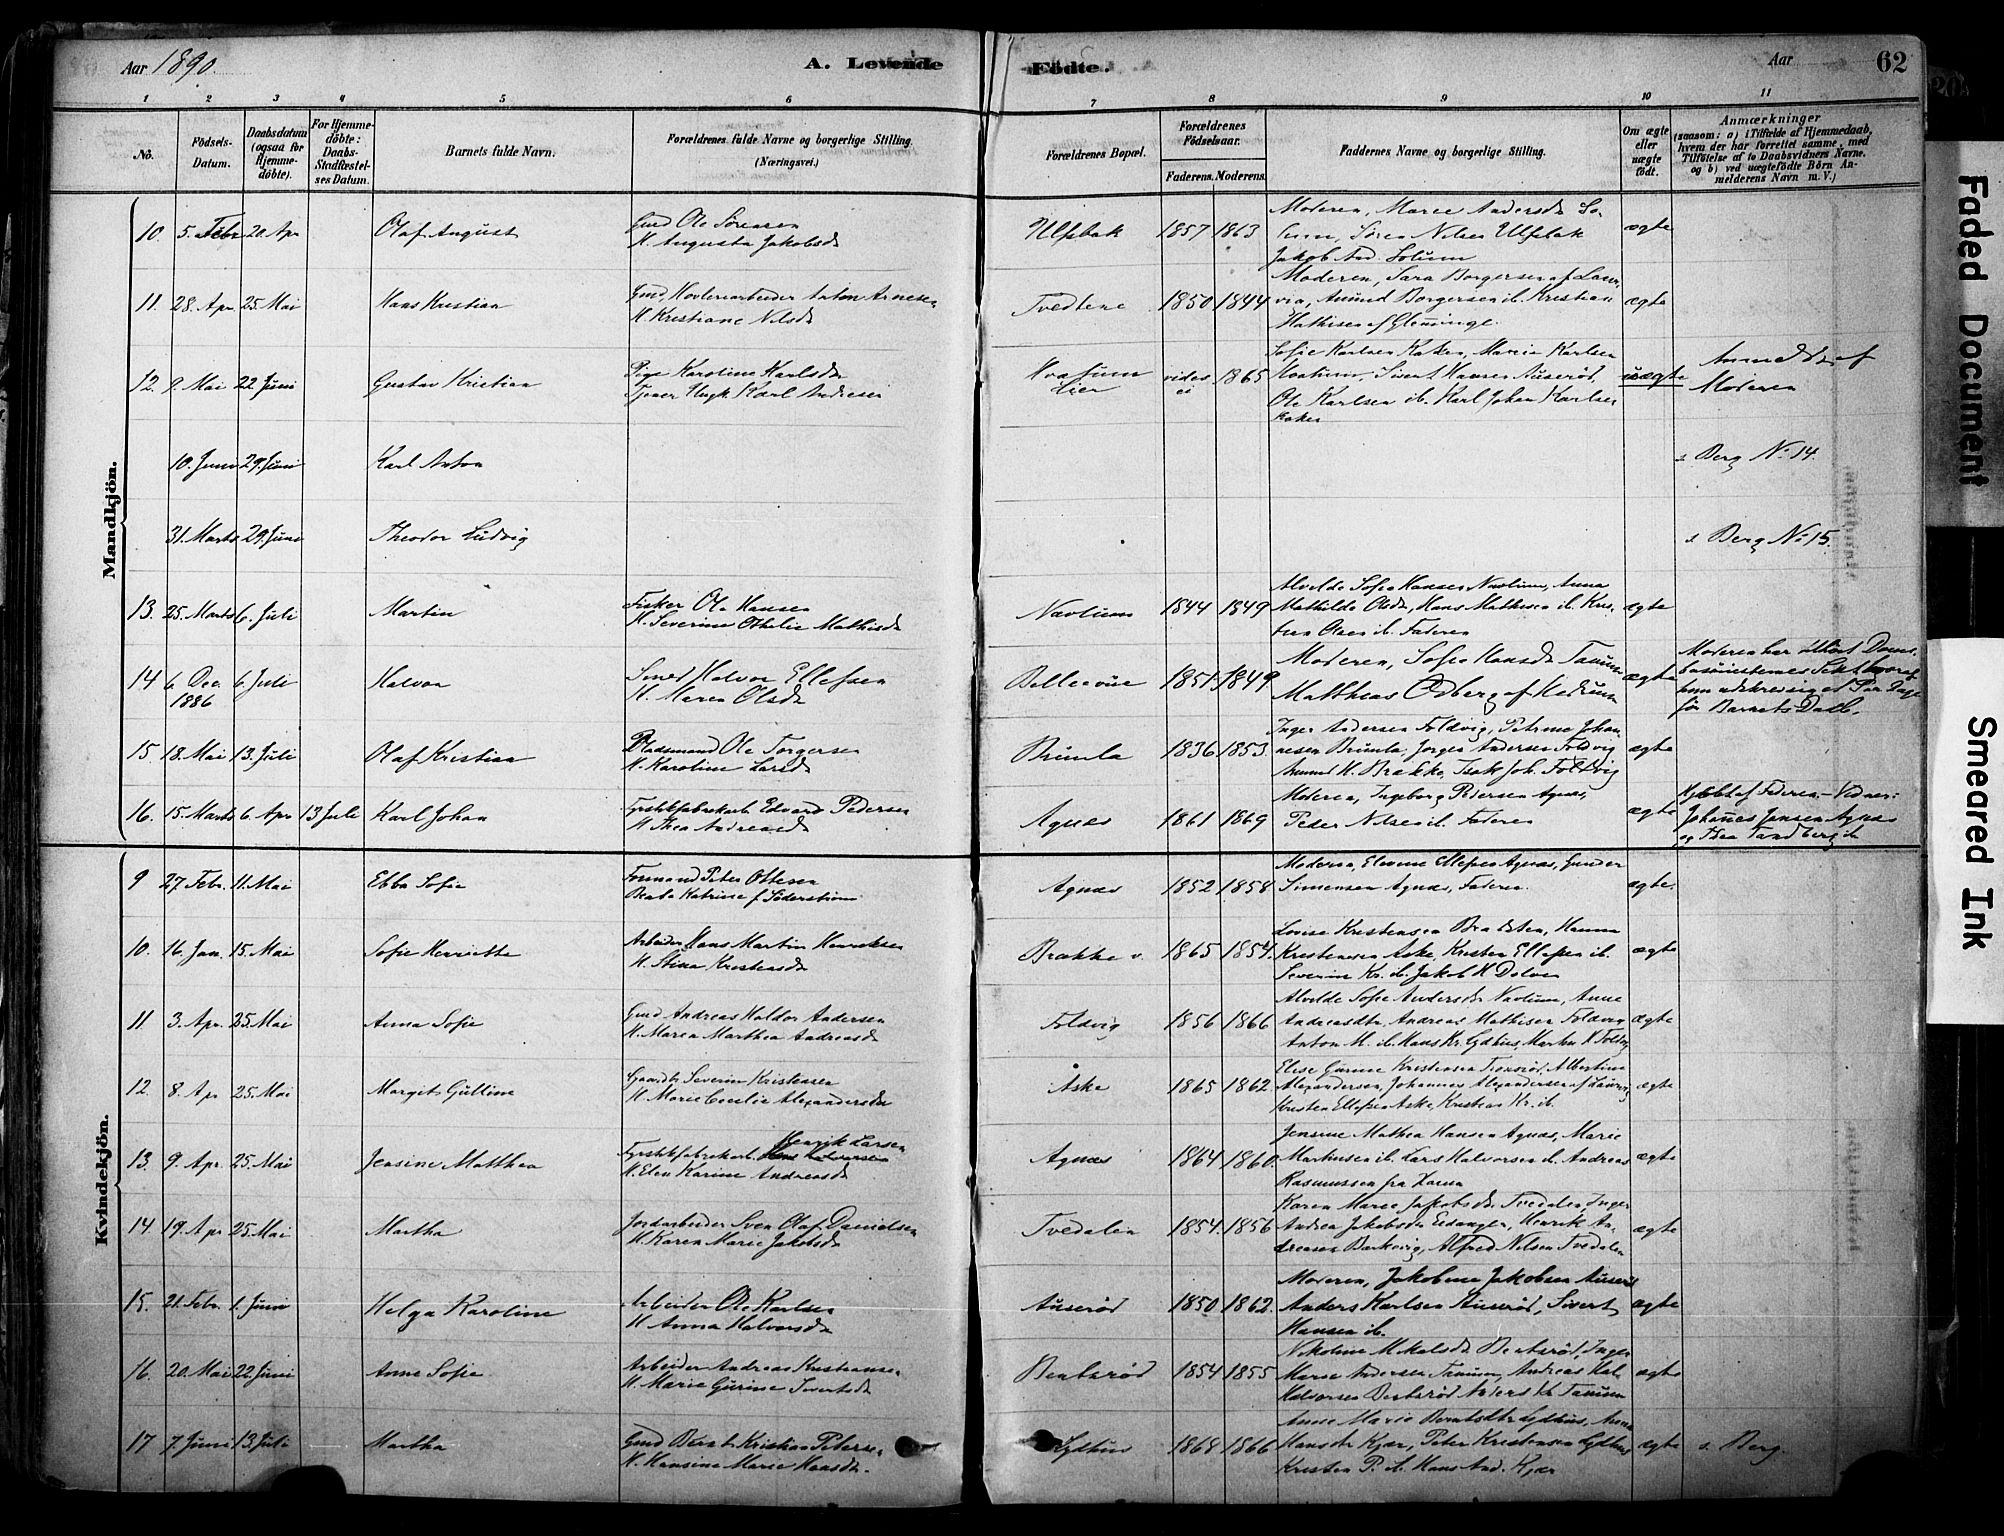 Aar 1890.
A. Levende Födte.
Aar
62
1 2 3 4 5 6 7 8 9 10 11
No.
Födsels-Datum.
Daabsdatum (ogsaa for Hjemme-döbte).
For Hjemme-döbte: Daabs-Stadfæstel-ses Datum.
Barnets fulde Navn.
Forældrenes fulde Navne og borgerlige Stilling. (Næringsvei.)
Forældrenes Bopæl.
Forældrenes Födselsaar.
Faderens. Moderens.
Faddernes Navne og borgerlige Stilling.
Om ægte eller uægte födt.
Anmærkninger
(saasom: a) i Tilfælde af Hjemmedaab, hvem der har forrettet samme, med Tilföielse af to Daabsvidners Navne, og b) ved uægtefödte Börn Anmelderens Navn m. V.)
Mandkjön.
10. 5. Febr 20. Apr Olaf August
Gmd Ole Sørensen
H. Augusta Jakobsd
Ulfsbak 1857 1863
Moderen, Maree Andersd So-
lum, Søren Nilsen Ulfsbak
Jakob And. Solum
ægte
11. 28. Apr. 25. Mai Hans Kristian
Gmd, Høvleriarbeider Anton Arnesen
H. Kristiane Nilsd
Tvedtene 1850 1844
Moderen, Sara Borgersen af Laur-
vig, Amund Borgersen ib. Kristian
Mathisen af Glemminge.
ægte
12. 9. Mai 22. Juni Gustav Kristian
Pige Karoline Karlsd
Tjener Ungk Karl Andresen
Hvatum
Lier
vides ei 1865
Sofie Karlsen Kaken, Marie Karlsen
Hvatum, Sivert Hansen Auserød,
Ole Karlsen ib. Karl Johan Karlsen
Kaken
uægte
Anmeldt af
Moderen
10. Juni 29. Juni Karl Anton
s Berg No 14.
31. Marts 29. Juni Theodor Ludvig
s Berg No 15.
13. 25. Marts 6. Juli Martin
Fisker Ole Hansen
H. Severine Othelie Mathisd
Navlum 1844 1849
Alvilde Sofie Hansen Navlum, Anna
Mathilde Olsd, Hans Mathisen ib. Kris-
ten Olsen ib. Faderen
ægte
14 6. Dec. 1886 6. Juli Halvor
Smed Halvor Ellefsen
H. Maren Olsd
Bellevue 1851 1849
Moderen, Sofie Hansd Tanum
Matthias Ødberg af Hedrum
ægte
Moderen har tilhørt
Sekt hvoraf
hun udskrev sig et Par Dage
før Barnets Daab.
15. 18. Mai 13. Juli Olaf Kristian
Pladsmand Ole Torgersen
H. Karoline Larsd
Brumla 1836 1853
Inger Andersen Foldvig, Petrine Johan-
nesen Brumla, Jørgen Andersen Foldvig
Amund H. Brække, Isak Joh. Foldvig
ægte
16. 15. Marts 6. Apr 13 Juli Karl Johan
Fyrstikfabrikarb. Edvard Pedersen
H. Thea Andreasd
Agnæs 1861 1869
Moderen, Ingeborg Pedersen Agnæs,
Peder Nilsen ib. Faderen
ægte
Hjdøbt af Faderen – Vidner:
Johannes Jensen Agnæs
og Thea Tandberg ib
Kvindekjön.
9 27 Febr. 11. Mai Ebba Sofie
Formand Peter Ottesen
Beata Katrine f Söderström
Agnæs 1852 1858
Moderen, Elevine Ellefsen Agnæs, Gunder
Simensen Agnæs, Faderen.
ægte.
10. 16. Jan. 15. Mai Sofie Henriette
Arbeider Hans Martin Henriksen
H. Stina Kristensd
Brække v. 1865 1854.
Lovise Kristensen Bradsten, Hanna
Kristensen Aske, Kristen Ellefsen ib.
Severin Kr. ib. Jakob H Dolven
ægte
11 3. Apr. 25. Mai Anna Sofie
Gmd Andreas Haldor Andersen
H. Maren Marthea Andreasd
Foldvig 1856 1866
Alvilde Sofie Andersd Navlum, Anne
Andreasdtr, Andreas Mathisen Foldvig
Anton M. ib. Hans Kr. Lydhus, Martin K Foldvig
ægte
12 8. Apr 25. Mai Margit Gulline
Gaardbr Severin Kristensen
H. Marie Cecilie Alexandersdtr
Aske 1865 1862.
Elise Gurine Kristensen, Albertine
Alexandersen, Johannes Alexandersen af Laurvig
Kristen Ellefsen Aske, Kristian Kr. ib.
ægte
13. 9. Apr. 25. Mai Jensine Matthea
Fyrstikfabrikarb. Henrik Larsen
H. Elen Karine Andreasd
Agnæs 1864 1860.
Jensine Mathea Hansen Agnæs, Marie
Markusen ib. Lars Halvorsen ib. Andreas
Rasmussen fra
ægte
14 19. Apr 25. Mai Martha
Jordarbeider Sven Olaf Danielsen
H. Karen Marie Jakobsd
Tvedalen 1854. 1856
Karen Marie Jakobsd Tvedalen, Inger
Andrea Jakobsen Eidanger, Henrik An-
dreasen Barkevig, Alfred Nilsen Tvedalen
ægte
15. 21. Febr. 1. Juni Helga Karoline
Arbeider Ole Karlsen
H Anna Halvorsd
Auserød 1850 1862.
Moderen, Jakobine Jakobsen Auserød
Anders Karlsen Auserød, Sivert
Hansen ib.
ægte
16. 20. Mai 22. Juni Anne Sofie
Arbeider Andreas Kristiansen
H. Marie Gurine Sivertsd
Bentsrød 1854 1855
Nikoline Mikalsd Bentsrød, Inger
Marie Andersen Tanum, Andreas Hal-
Halvorsen Bentsrød Anders Kr. Tanum
ægte
17 7. Juni 13. Juli Martha
Gmd Bernt Kristian Petersen
H. Hansine Marie Hansdtr.
Lydhus 1868 1866
Anne Marie Berntsdtr Lydhus, Anna
Hansdtr Kjær, Peter Kristensen Lydhus,
Kristen P. ib. Hans And. Kjær
ægte
s. Berg.
Faded Document
Smeared Ink